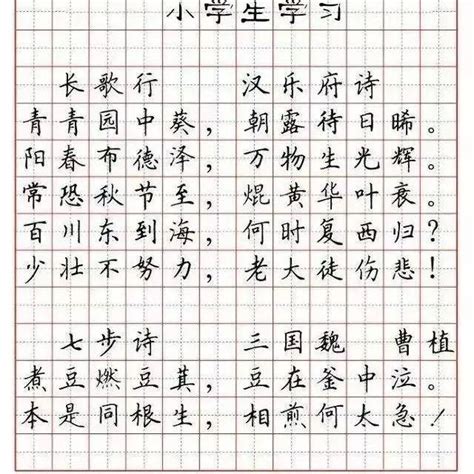 小学生学习
长歌行 汉乐府诗
青青园中葵，朝露待日晞。
阳春布德泽，万物生光辉。
常恐秋节至，焜黄华叶衰。
百川东到海，何时复西归？
少壮不努力，老大徒伤悲！
七步诗 三国魏 曹植
煮豆燃豆萁，豆在釜中泣。
本是同根生，相煎何太急！